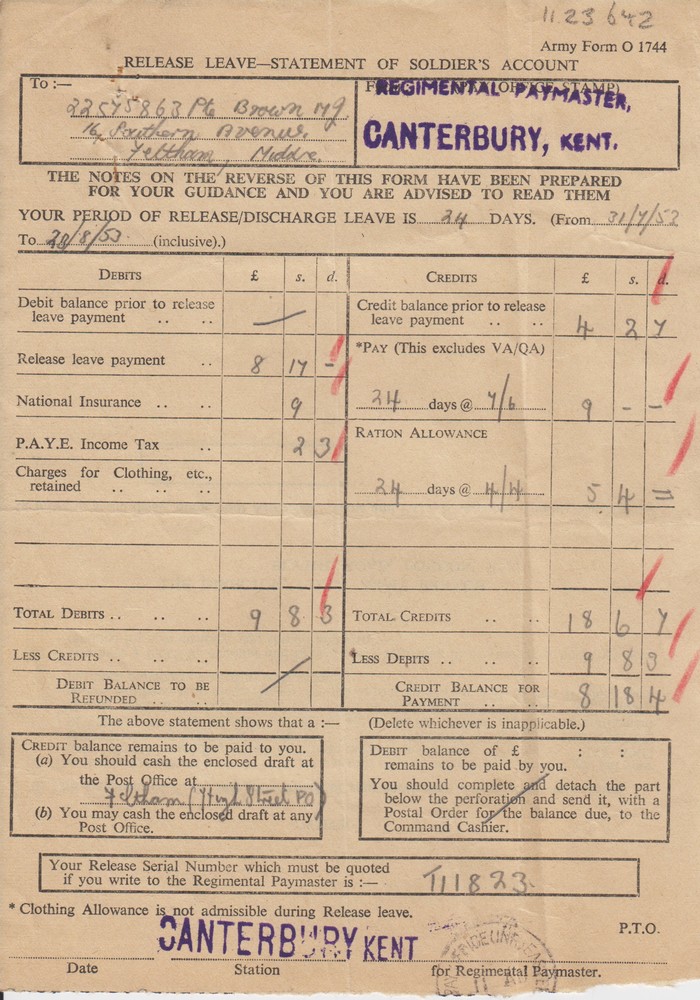 11 23 642
Army Form O 1744
RELEASE LEAVE—STATEMENT OF SOLDIER'S ACCOUNT
To :—
22575863 Pte Brown MJ
16, Southern Avenue,
Feltham, Middx.
REGIMENTAL PAYMASTER,
CANTERBURY, KENT.
THE NOTES ON THE REVERSE OF THIS FORM HAVE BEEN PREPARED
FOR YOUR GUIDANCE AND YOU ARE ADVISED TO READ THEM
YOUR PERIOD OF RELEASE/DISCHARGE LEAVE IS 24 DAYS. (From 31/7/53
To 28/8/53 (inclusive).)
DEBITS £ s. d.
Debit balance prior to release
leave payment .. .. —
Release leave payment .. 8 17 -
National Insurance .. .. 9
P.A.Y.E. Income Tax .. 2 3
Charges for Clothing, etc.,
retained .. .. ..
TOTAL DEBITS .. .. 9 8 3
LESS CREDITS .. .. ..
DEBIT BALANCE TO BE
REFUNDED .. ..
CREDITS £ s. d.
Credit balance prior to release
leave payment .. .. 4 2 7
*PAY (This excludes VA/QA)
24 days @ 7/6 9 - -
RATION ALLOWANCE
24 days @ 4/4 5 4 =
TOTAL CREDITS .. .. 18 6 7
LESS DEBITS .. .. .. 9 8 3
CREDIT BALANCE FOR
PAYMENT .. .. 8 18 4
The above statement shows that a :— (Delete whichever is inapplicable.)
CREDIT balance remains to be paid to you.
(a) You should cash the enclosed draft at
the Post Office at
Feltham (High Street PO)
(b) You may cash the enclosed draft at any
Post Office.
DEBIT balance of £ : :
remains to be paid by you.
You should complete and detach the part
below the perforation and send it, with a
Postal Order for the balance due, to the
Command Cashier.
Your Release Serial Number which must be quoted
if you write to the Regimental Paymaster is :— T11823
* Clothing Allowance is not admissible during Release leave.
P.T.O.
CANTERBURY KENT
Date Station for Regimental Paymaster.